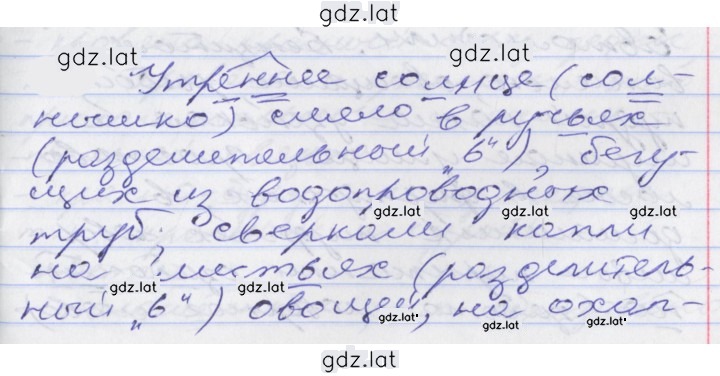 gdz.lat
gdz.lat
Утреннее солнце (сол-
нышко) сияло в ручьях
(разделительный „ь“), бегу-
щих из водопроводных
gdz.lat gdz.lat
труб; сверкали капли
gdz.lat gdz.lat
на листьях (разделитель-
gdz.lat gdz.lat
ный „ь“) овощей, на охап-
gdz.lat gdz.lat gdz.lat
gdz.lat